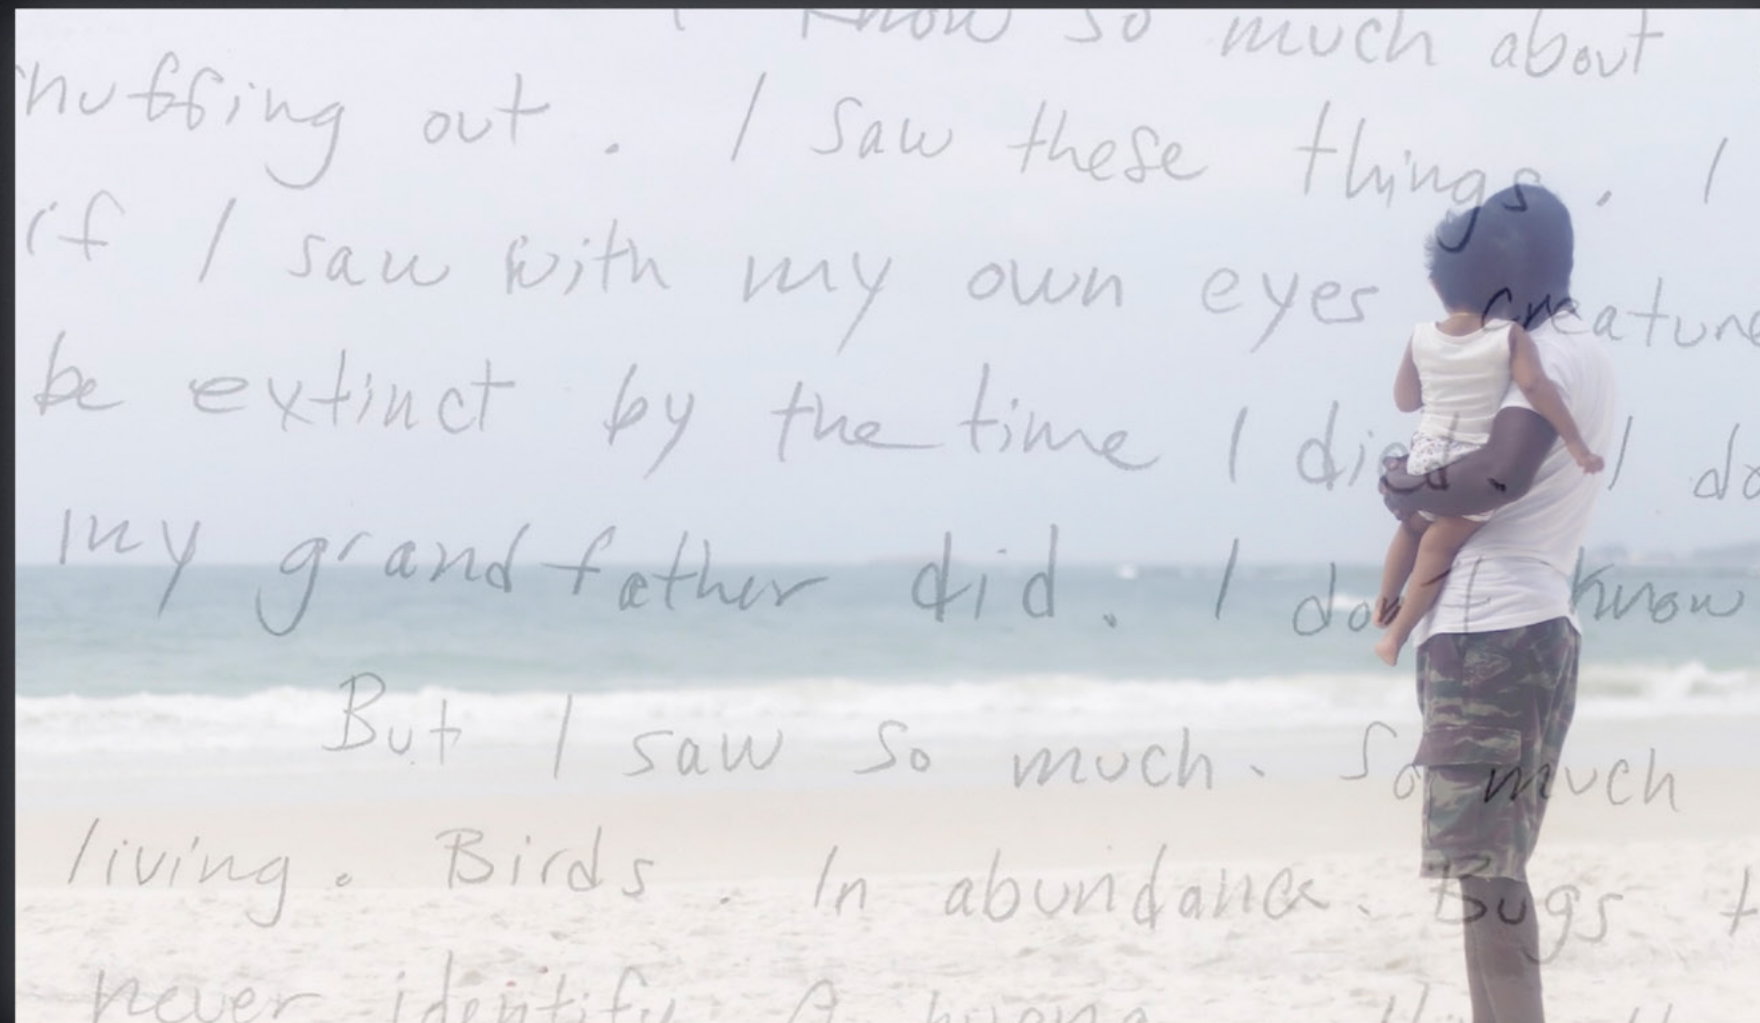 I know so much about
nuffing out. I saw these things. I
if I saw with my own eyes creature
be extinct by the time I died. I do
my grandfather did. I don't know
But I saw so much. So much
living. Birds. In abundance. Bugs t
never identify. A